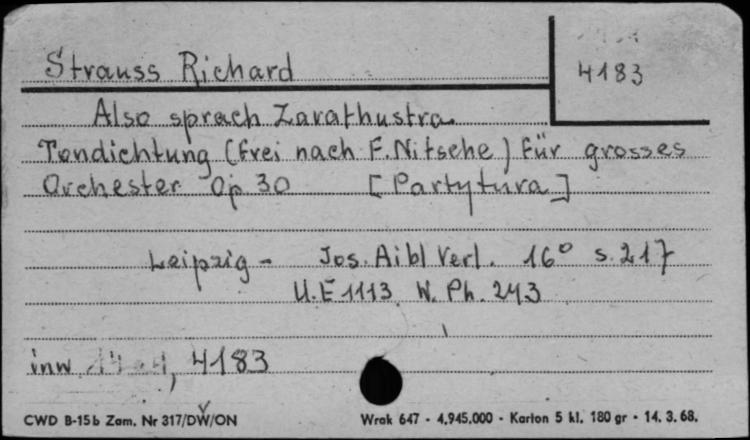 Strauss Richard
4183
Also sprach Zarathustra.
Tondichtung (frei nach F. Nitsche) für grosses
Orchester Op 30 [Partytura]
Leipzig - Jos. Aibl Verl. 16° s. 217
U.E 1113 W. Ph. 243
inw , 4183
CWD B-15b Zam. Nr 317/DW/ON Wrak 647 - 4.945.000 - Karton 5 kl. 180 gr - 14. 3. 68.